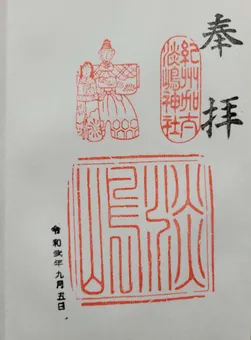 奉拝
紀州加太
淡嶋神社
淡嶋
令和弐年九月五日